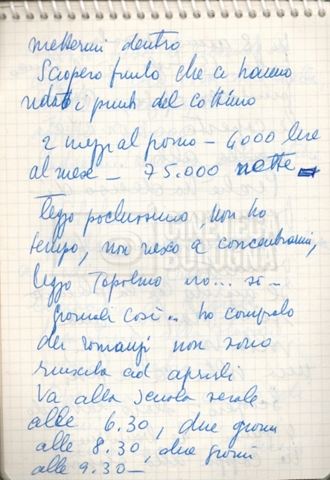 mettermi dentro
Sciopero finito che ci hanno
ridati i punti del cottimo
2 mezzi al giorno - 4000 lire
al mese - 75.000 nette
Leggo pochissimo, non ho
tempo, non riesco a concentrarmi,
leggo Topolino no... si..
giornali così.. ho comprato
dei romanzi non sono
riuscita ad aprirli
Va alla scuola serale
alle 6.30, due giorni
alle 8.30, due giorni
alle 9.30 -